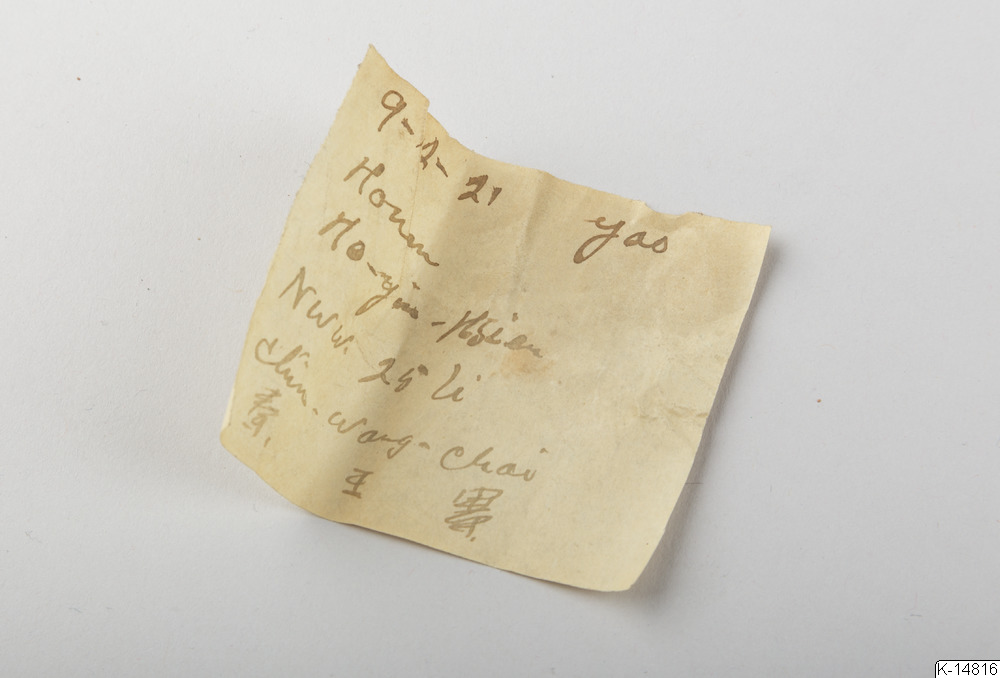 9-2-21 Yao
Honan
Ho-yin-Hsien
NWW. 25 li
Chin-Wang-Chai
王
K-14816